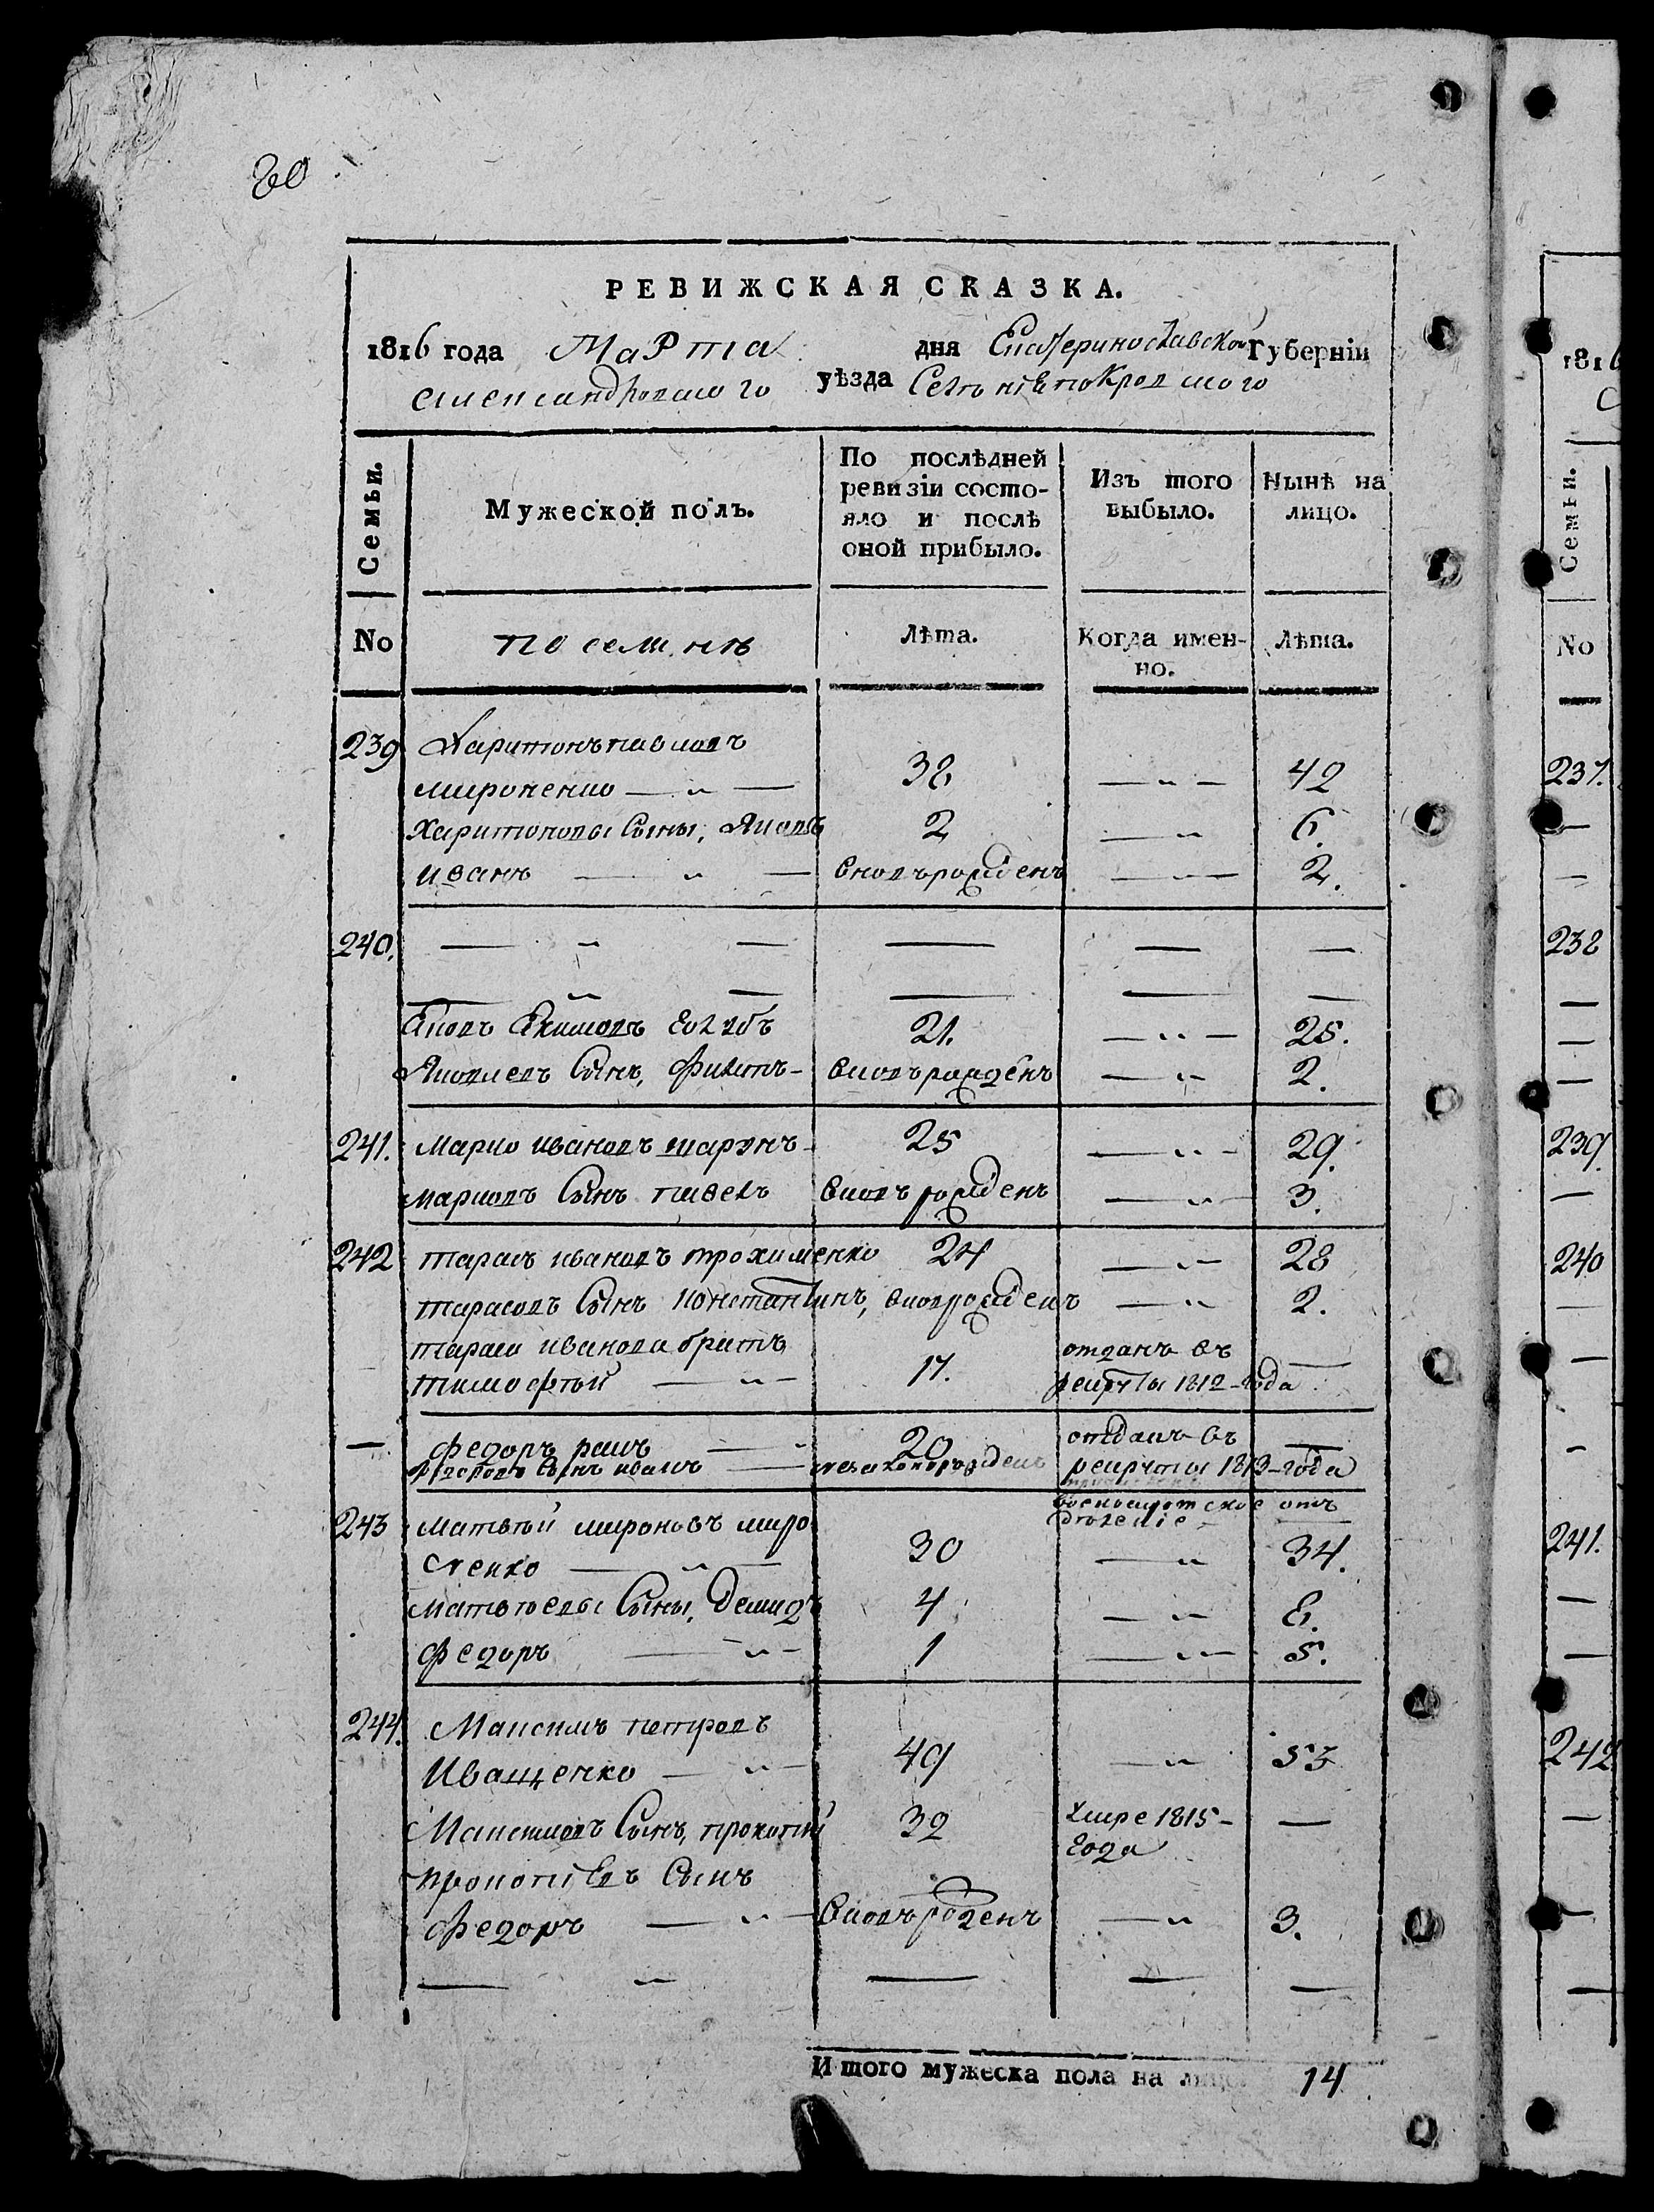 80
РЕВИЖСКАЯ СКАЗКА.
1816 года Марта дня Екатеринославской Губернiи
Александровского уѣзда Села
Семьи.
Мужеской полъ.
По послѣдней ревизiи состо-
яло и послѣ
оной прибыло.
Изъ того выбыло.
Нынѣ на лицо.
No
Лѣта.
Когда имен-
но.
Лѣта.
239 Харитонъ павловъ
мироненко — „ — 38 — „ — 42
Харитоновы Сыны, Яковъ 2 — „ 6.
иванъ — „ — вновь рожденъ — „ — 2.
240. — „ — — — —
— „ — — — —
Акимовъ 21. — „ — 25.
Яковлевъ Сынъ, Филипъ - вновь рожденъ — „ 2.
241. Марко ивановъ 25 — „ - 29.
марковъ Сынъ павелъ вновь рожденъ — „ 3.
242 тарасъ ивановъ трохименко 24 — „ — 28
тарасовъ Сынъ Константинъ, вновь рожденъ — „ 2.
тараса иванова братъ
тимофѣй — „ — 17. отданъ въ
рекруты 1812-года —
— Федоръ — „ 20 отданъ въ
рекруты 1813-года —
Сынъ иванъ — незаконорожденъ
военносиротское отъ
дѣление —
243 Матвѣй мироновъ миро
ненко — „ — 30 — „ 34.
Матвѣевы Сыны, Демидъ 4 — „ 8.
Федоръ — „ - 1 — „ — 5.
244. Максимъ петровъ
Иващенко — „ - 49 — „ 53
Максимовъ Сынъ, прокопий 32 умре 1815-
года —
прокопiевъ Сынъ
Федоръ — „ — вновь рожденъ — „ 3.
— „ — — —
Итого мужеска пола на лицо 14
1816
Семьи.
No
237.
—
—
238
—
—
—
239.
—
240
—
—
—
241.
—
—
242
—
—
—